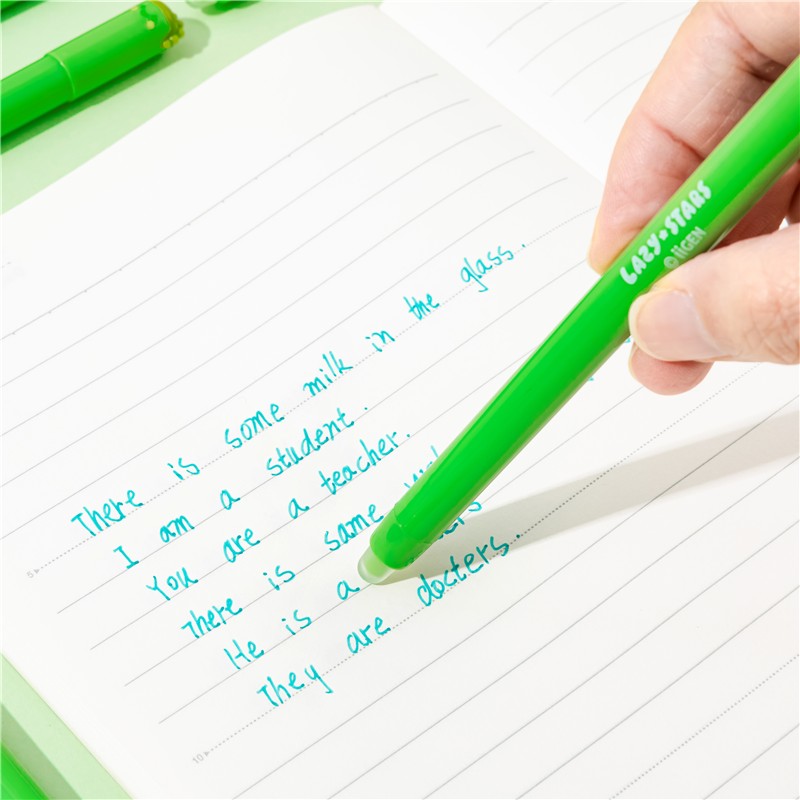 There is some milk in the glass.
I am a student.
You are a teacher.
There is same
He is a
They are docters.
LAZY★STARS
©iiGEN
5
10